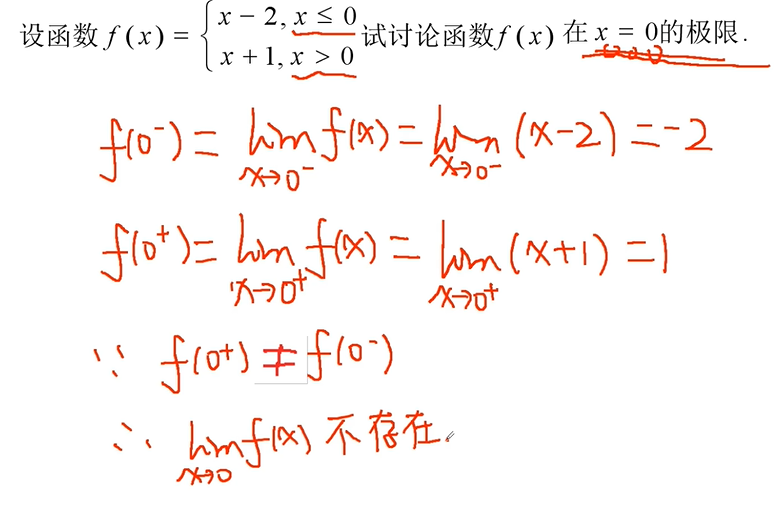 设函数 f(x) = { x − 2, x ≤ 0 试讨论函数f(x) 在 x = 0的极限.
x + 1, x > 0
f(0⁻) = lim x→0⁻ f(x) = lim x→0⁻ (x−2) = −2
f(0⁺) = lim x→0⁺ f(x) = lim x→0⁺ (x+1) = 1
∵ f(0⁺) ≠ f(0⁻)
∴ lim x→0 f(x) 不存在.